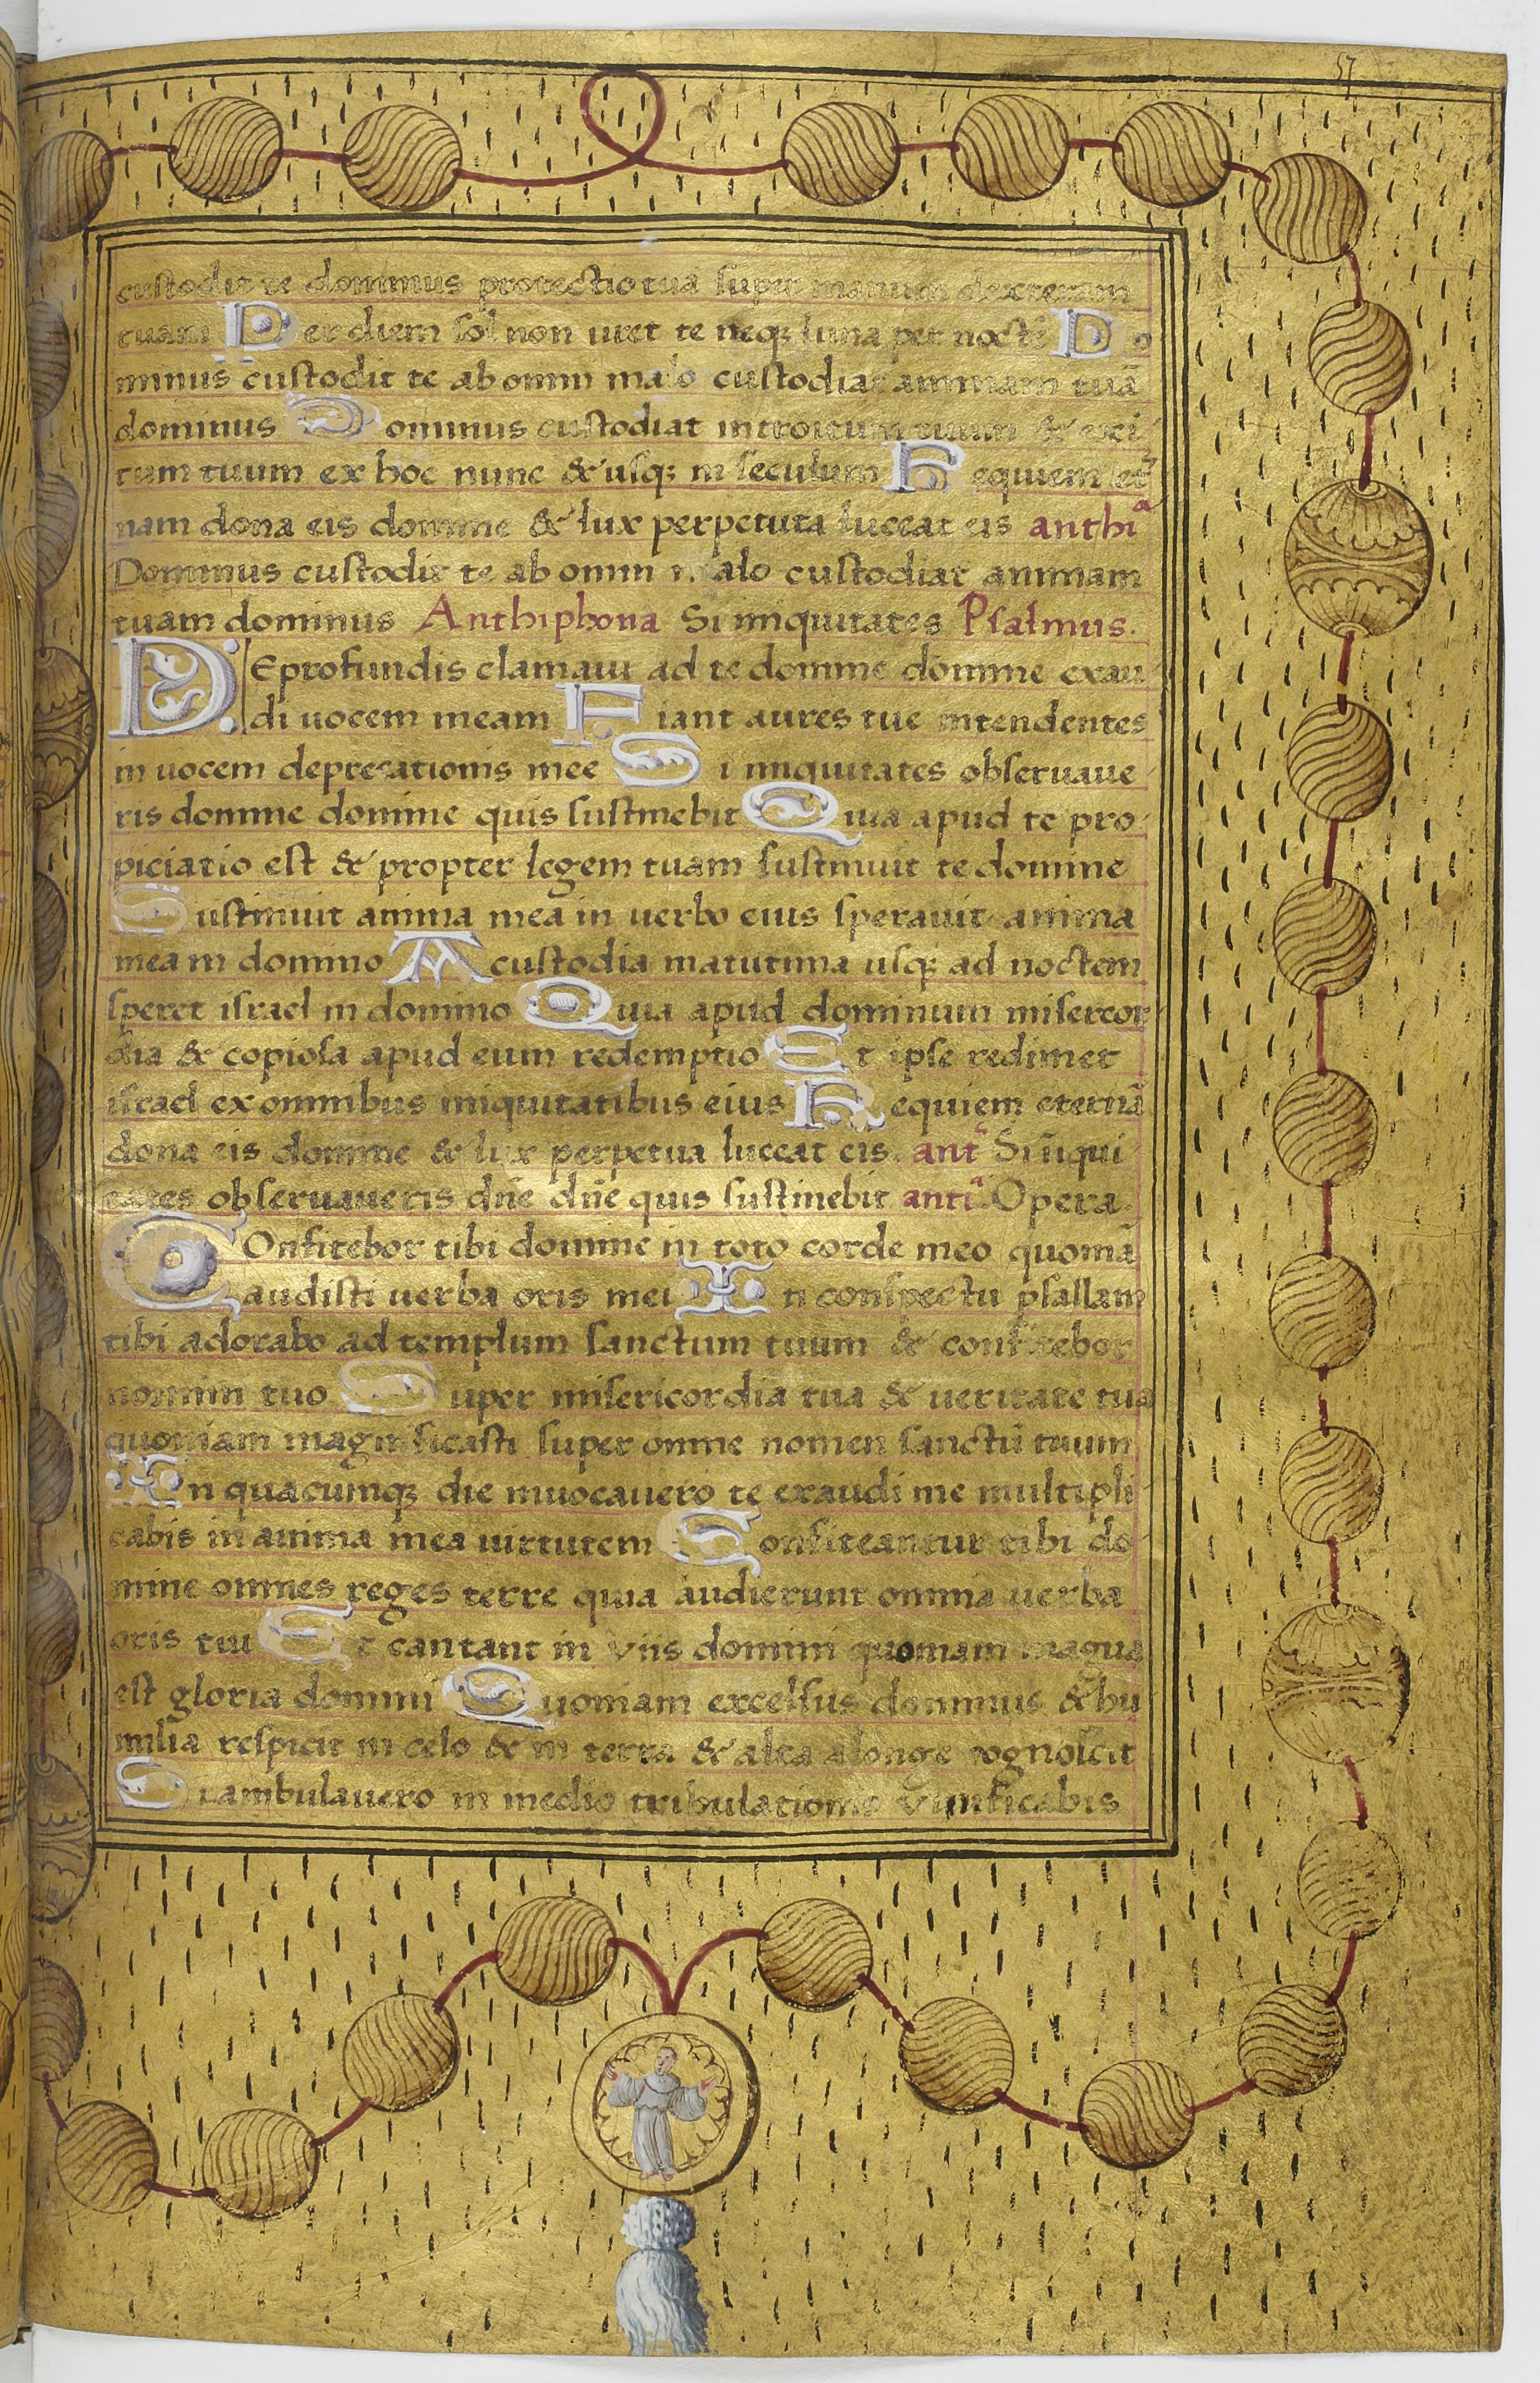 57
custodit te dominus protectio tua super manum dexteram
tuam Per diem sol non uret te neq; luna per noctē Do
minus custodit te ab omni malo custodiat animam tuā
dominus Dominus custodiat introitum tuum & exi
tum tuum ex hoc nunc & usq; in seculum Requiem et
nam dona eis domine & lux perpetuta luceat eis anthiᵃ
Dominus custodit te ab omni malo custodiat animam
tuam dominus Anthiphona Si iniquitates Psalmus.
DE profundis clamaui ad te domine domine exau
di uocem meam Fiant aures tue intendentes
in uocem deprecationis mee Si iniquitates obseruaue
ris domine domine quis sustinebit Quia apud te pro
piciatio est & propter legem tuam sustinuit te domine
Sustinuit anima mea in uerbo eius speravit anima
mea in domino A custodia matutina usq; ad noctem
speret israel in domino Quia apud dominum misericor
dia & copiosa apud eum redemptio Et ipse redimet
israel ex omnibus iniquitatibus eius Requiem eternā
dona eis domine & lux perpetua luceat eis. antᵃ Si iiqui
tates obseruaueris dn̄e dn̄e quis sustinebit antiᵃ. Opera.
COnfitebor tibi domine in toto corde meo quoniā
audisti uerba oris mei In conspectu psallam
tibi adorabo ad templum sanctum tuum & confitebor
nomini tuo Super misericordia tua & ueritate tua
quoniam magnificasti super omne nomen sanctū tuum
In quacumq; die inuocavero te exaudi me multipli
cabis in anima mea uirtutem Confiteantur tibi do
mine omnes reges terre quia audierunt omnia uerba
oris tui Et cantant in viis domini quoniam magna
est gloria domini Quoniam excelsus dominus & hu
milia respicit in celo & in terra & alta alonge cognoscit
Si ambulauero in medio tribulationis vivificabis